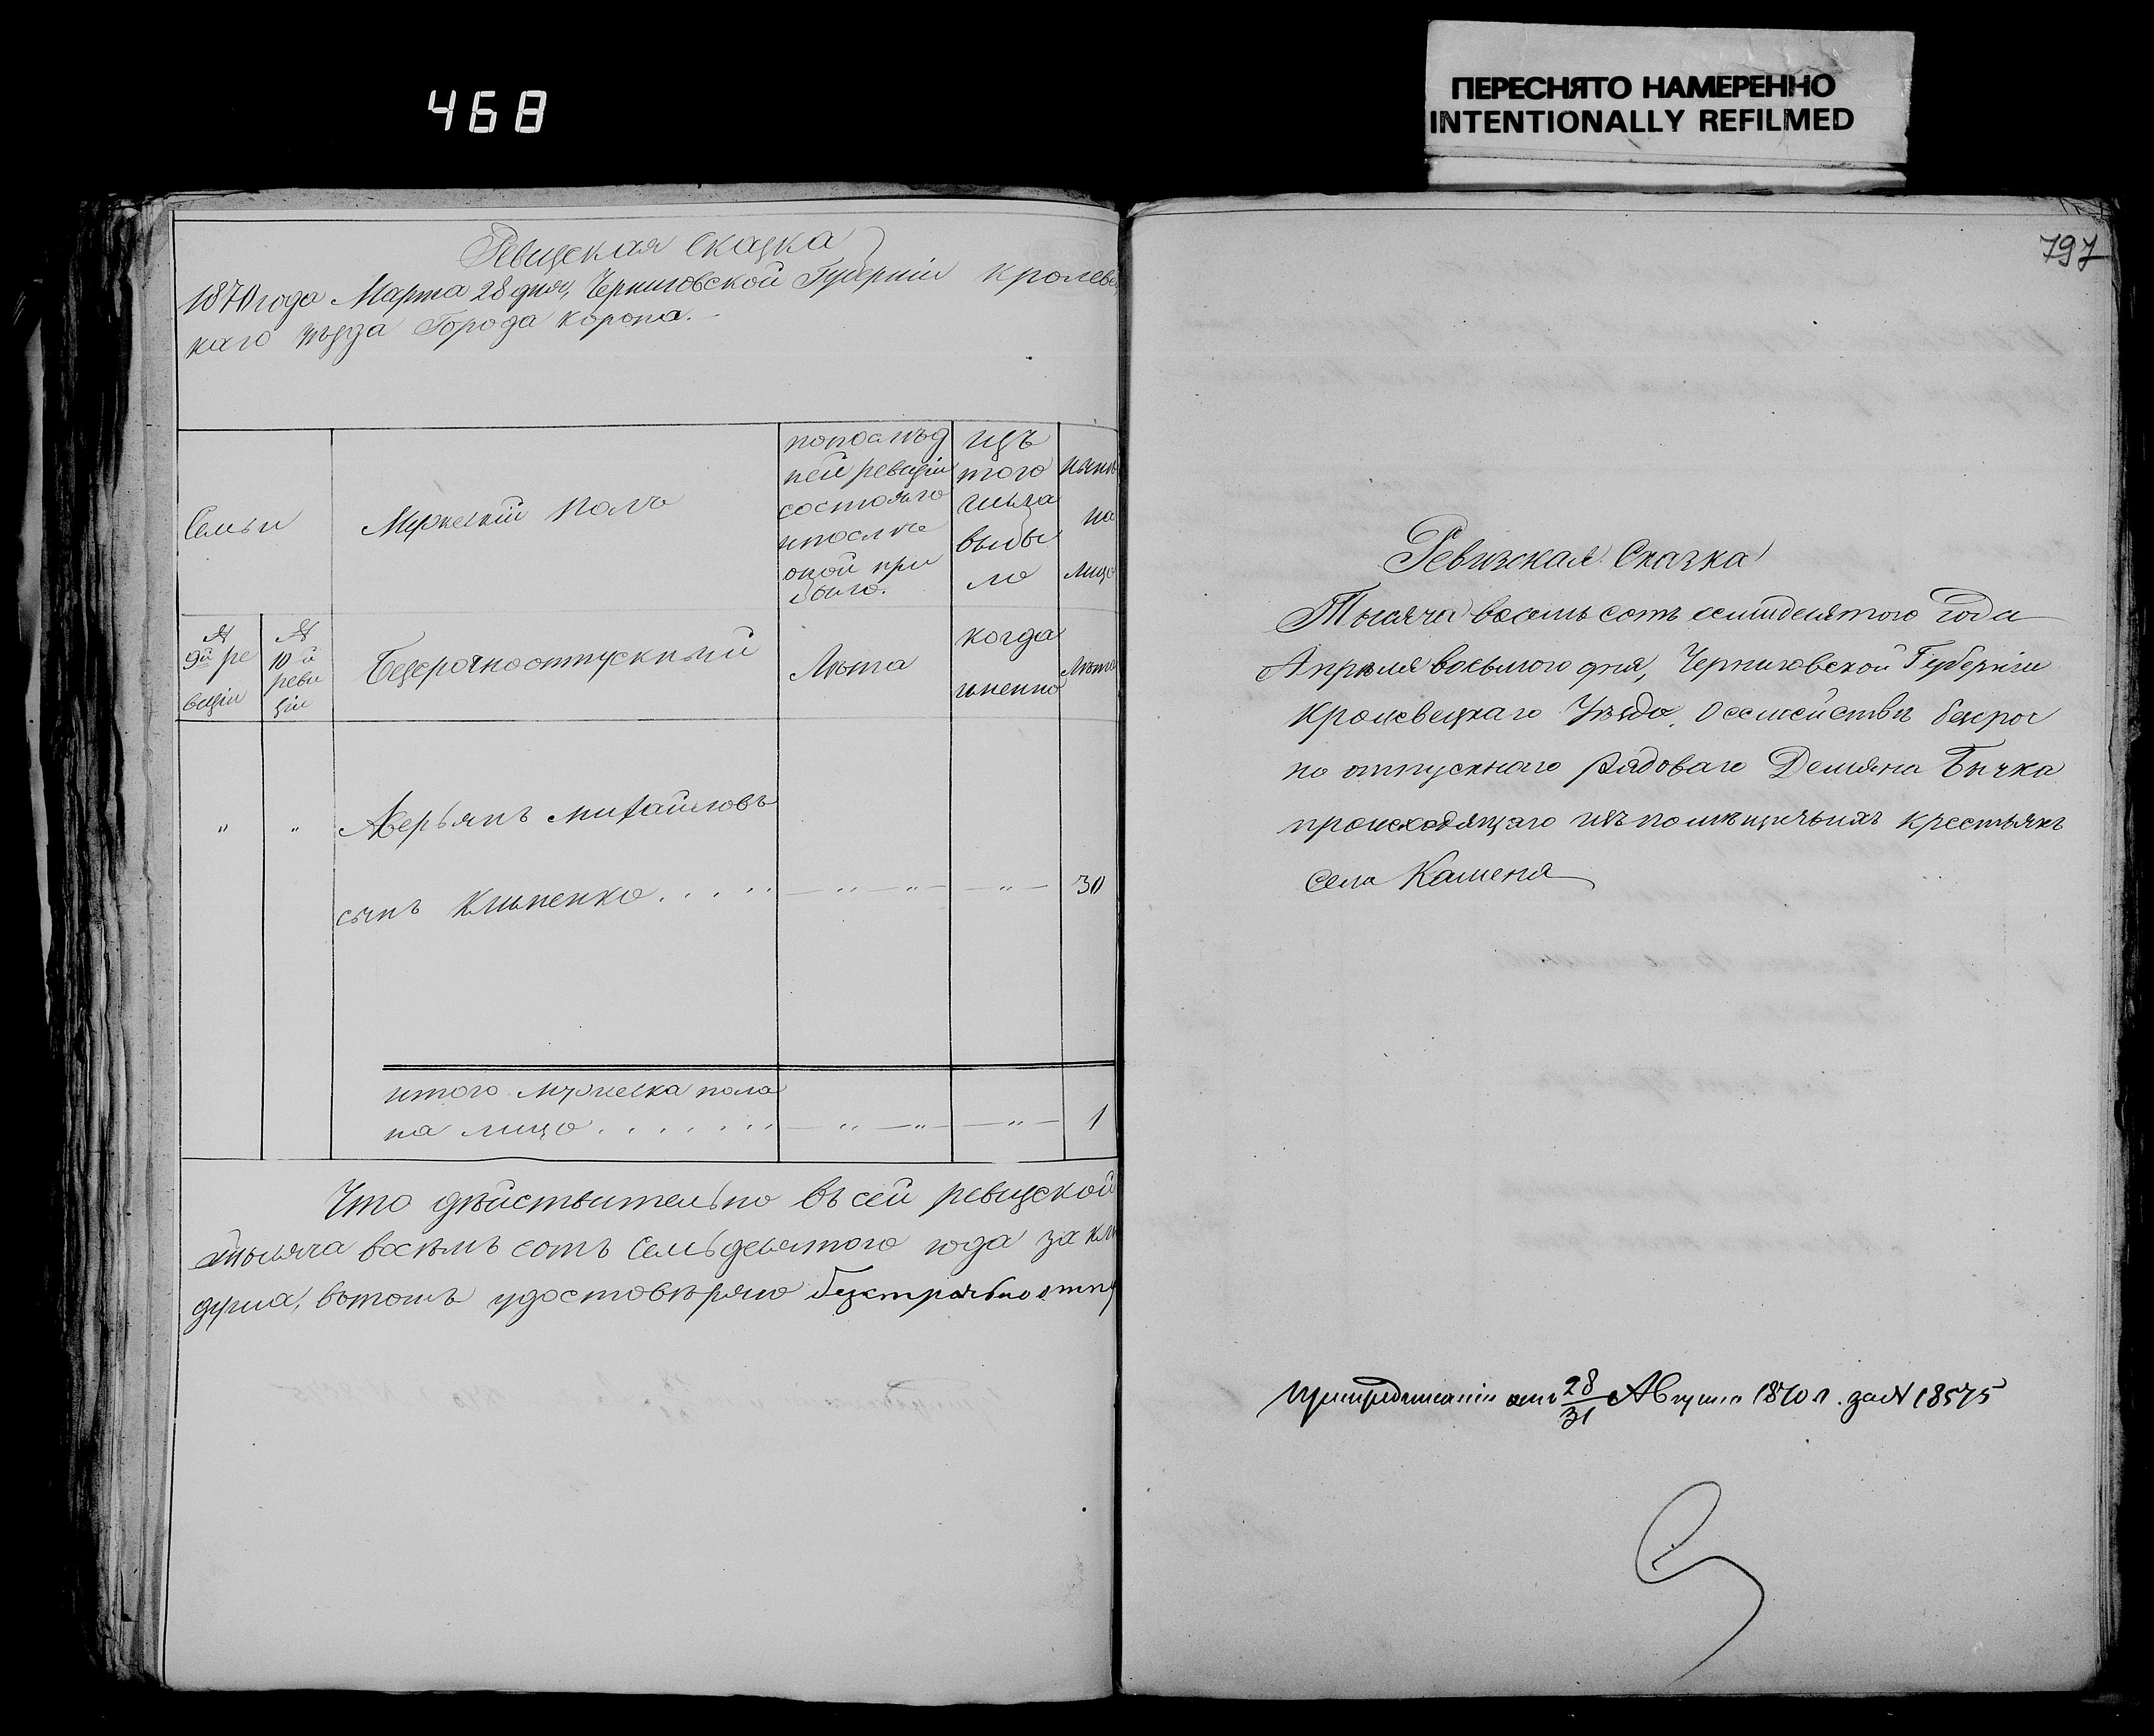 468
ПЕРЕСНЯТО НАМЕРЕННО
INTENTIONALLY REFILMED
Ревизская Сказка
1870 года Марта 28 дня, Черниговской Губерніи Кролеве
каго уѣзда Города Коропа.
Семьи
Мужескій Полъ
попослѣд
ней ревизіи
состояло
ипослѣ
оной при
было.
изъ
того
числа
выбы
ло
нынѣ
на
лицо
№
9й ре
визіи
№
10й
реви
зіи
Безсрочноотпускный
Лѣта
когда
именно
Лѣта
" " Аверьянъ Михайловъ
сынъ Клименко. . . . . . — " — " — — " — 30
итого мужеска пола
на лицо. . . . . . . — " — " — — " — 1
Что дѣйствительно въ сей ревизской
тысяча восемъ сотъ семьдесятого года за
душа, вотомъ удостовѣряю
797
Ревизская Сказка
Тысяча восемь сотъ семидесятого года
Апрѣля восьмого дня, Черниговской Губерніи
Кролевецкаго Уѣзда, О семействѣ безсроч
но отпускного рядоваго Демяна Бычка
происходящаго изъ помѣщичьихъ крестьянъ
села Каменя
при предписаніи отъ 28/31 Августа 1870 г. за № 18575